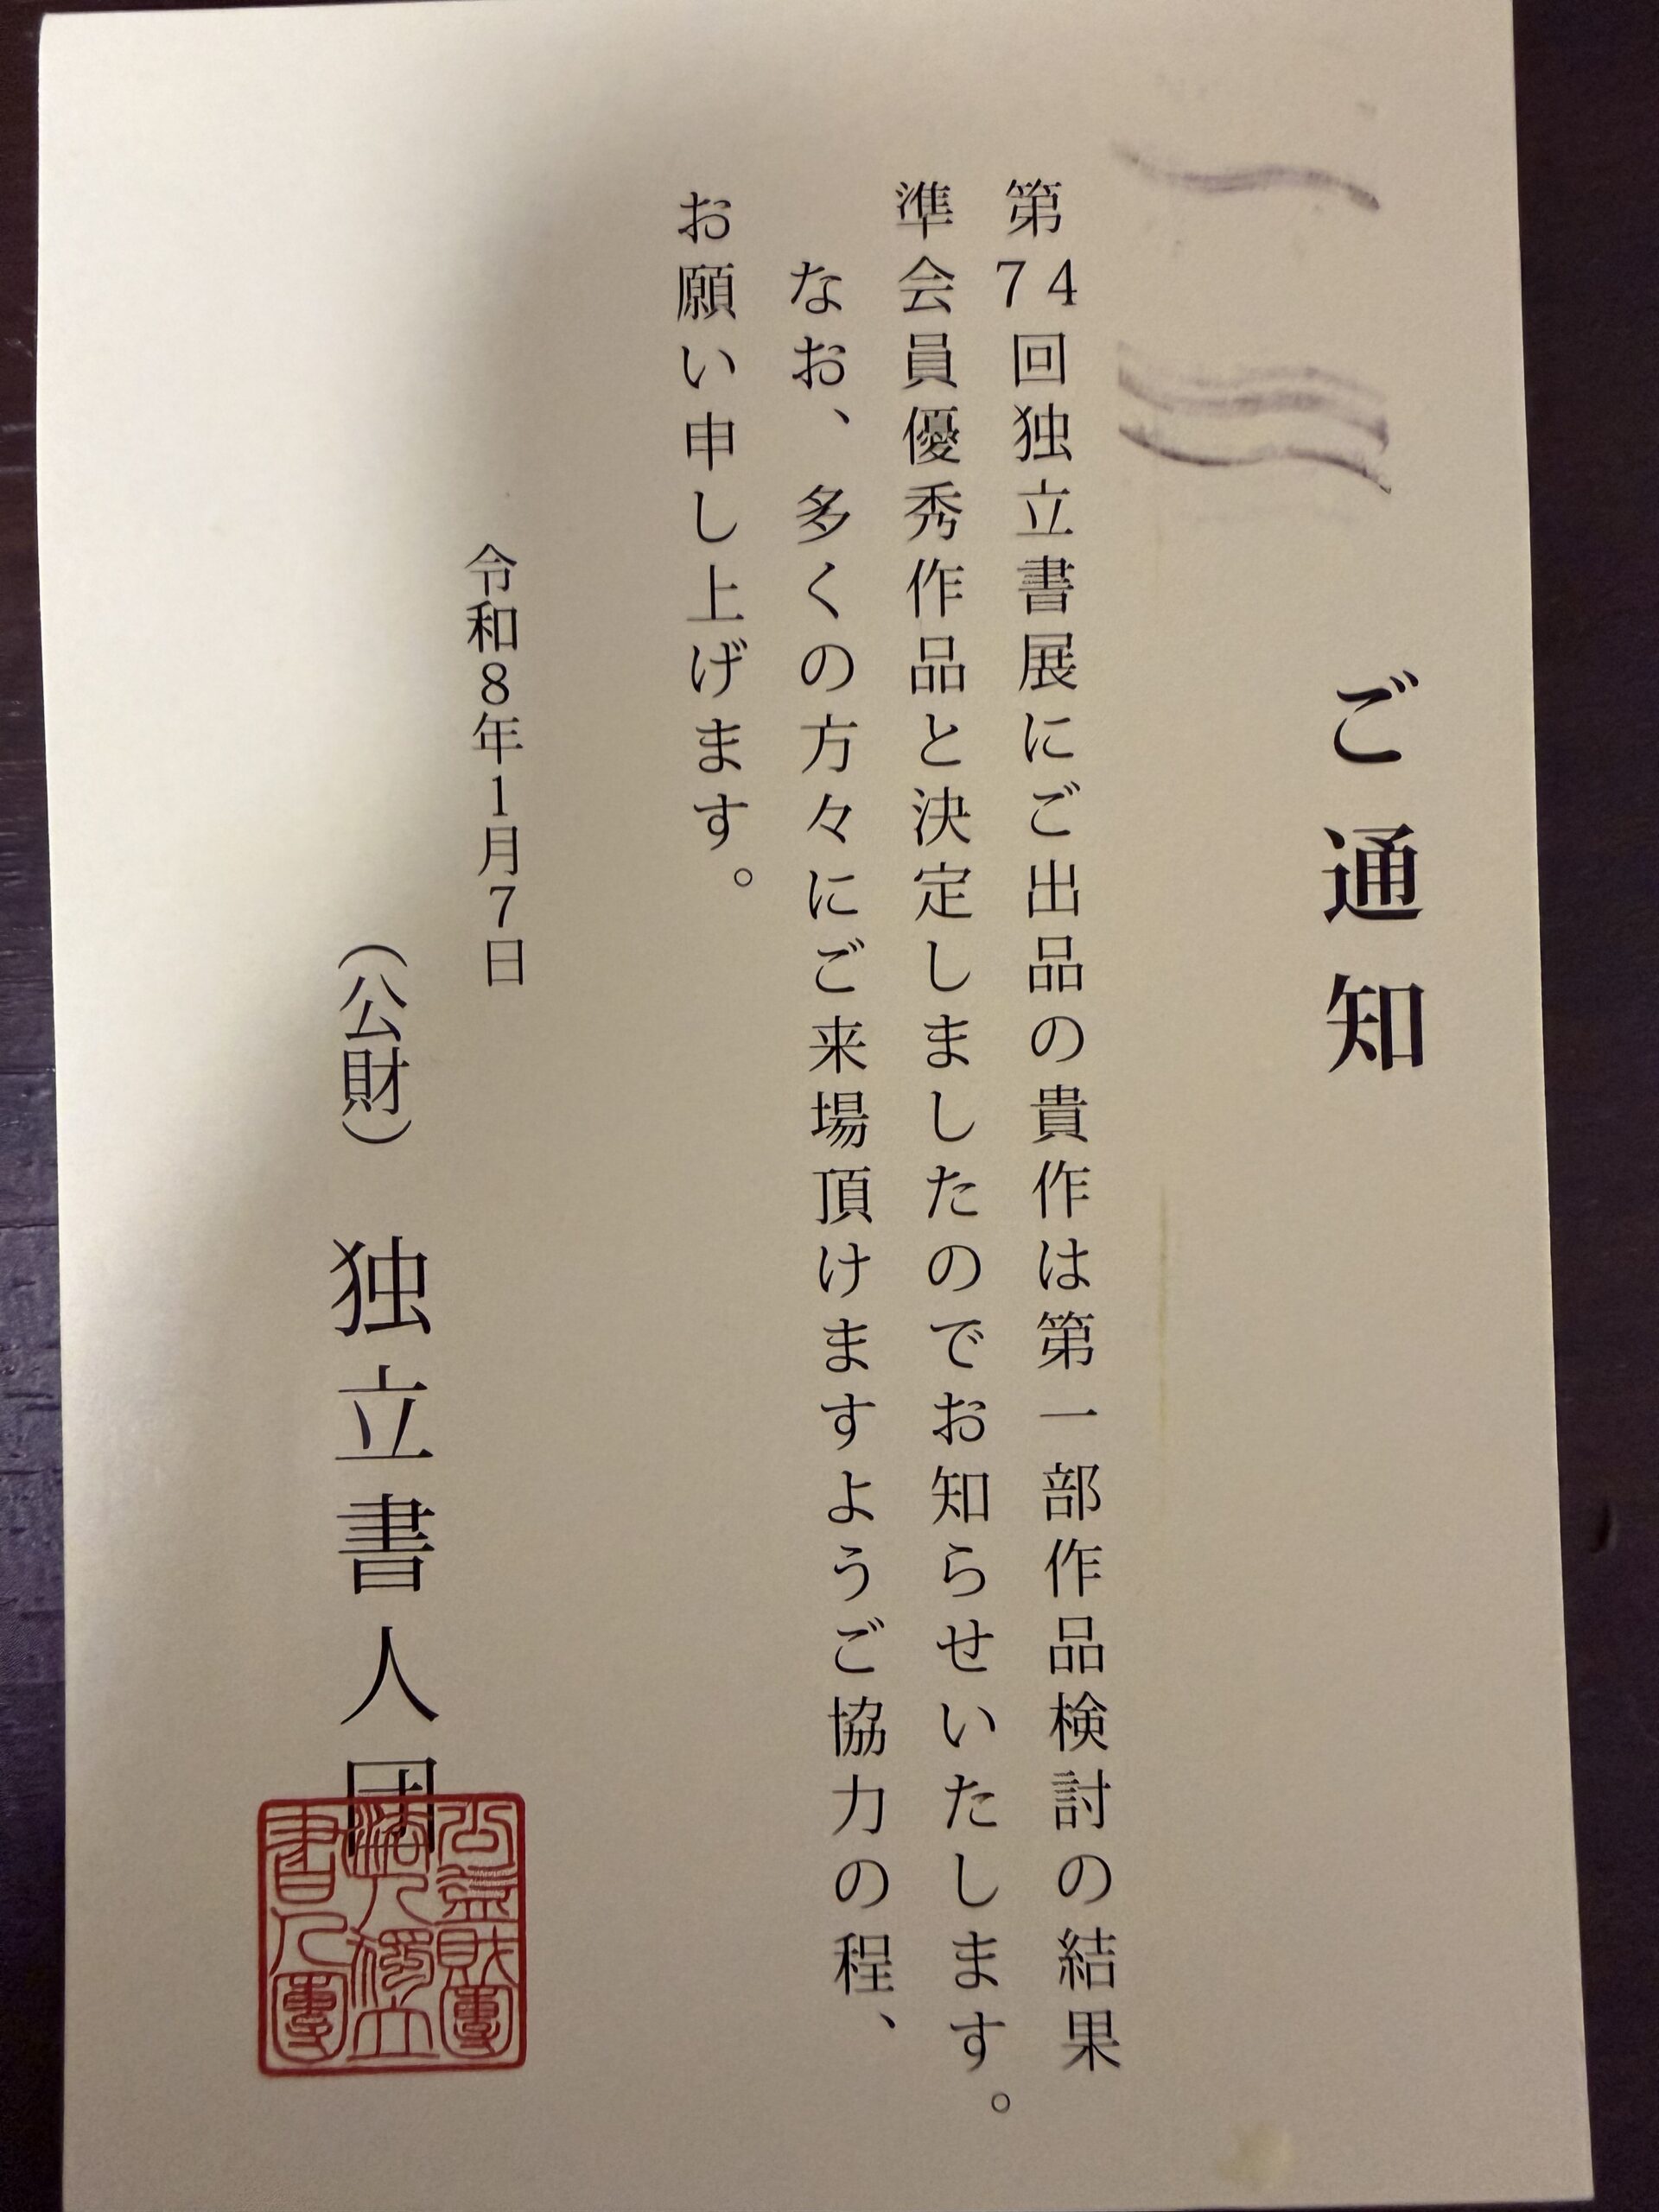 ご通知
第74回独立書展にご出品の貴作は第一部作品検討の結果
準会員優秀作品と決定しましたのでお知らせいたします。
なお、多くの方々にご来場頂けますようご協力の程、
お願い申し上げます。
令和8年1月7日
（公財） 独立書人団
公益財團
法人獨立
書人團